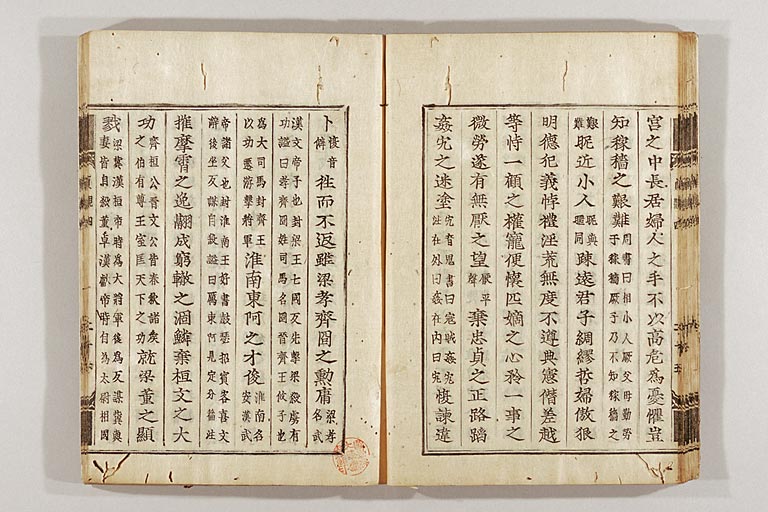 宮之中長居婦人之手不以高危爲憂懼豈
知稼穡之艱難周書曰相小人厥父母勤勞于稼穡厥子乃不知稼穡之
艱難昵近小人昵與暱同疎遠君子綢繆哲婦傲狠
明德犯義悖禮淫荒無度不遵典憲僭差越
等恃一顧之權寵便懷匹嫡之心矜一事之
微勞遂有無厭之望厭平聲棄忠貞之正路蹈
姦宄之迷塗宄音鬼書曰寇賊姦宄注在外曰姦在內曰宄愎諫違
卜愎音僻徃而不返雖梁孝齊冏之勲庸梁孝名武
漢文帝子也封梁王七國反先擊梁殺虜有功謚曰孝齊冏姓司馬名冏晉齊王攸子也
爲大司馬封齊王以功遷游擊將軍淮南東阿之才俊淮南名安漢武
帝諸父也封淮南王好書鼓琴招賓客喜文辭後坐反謀自殺謚曰厲東阿見定分篇註
摧摩霄之逸翮成窮轍之涸鱗棄桓文之大
功齊桓公晉文公皆春秋諸矦之伯有尊王室匡天下之功就梁董之顯
戮梁冀漢桓帝時爲大將軍後爲反謀冀與妻皆自殺董卓漢獻帝時自爲太尉相國